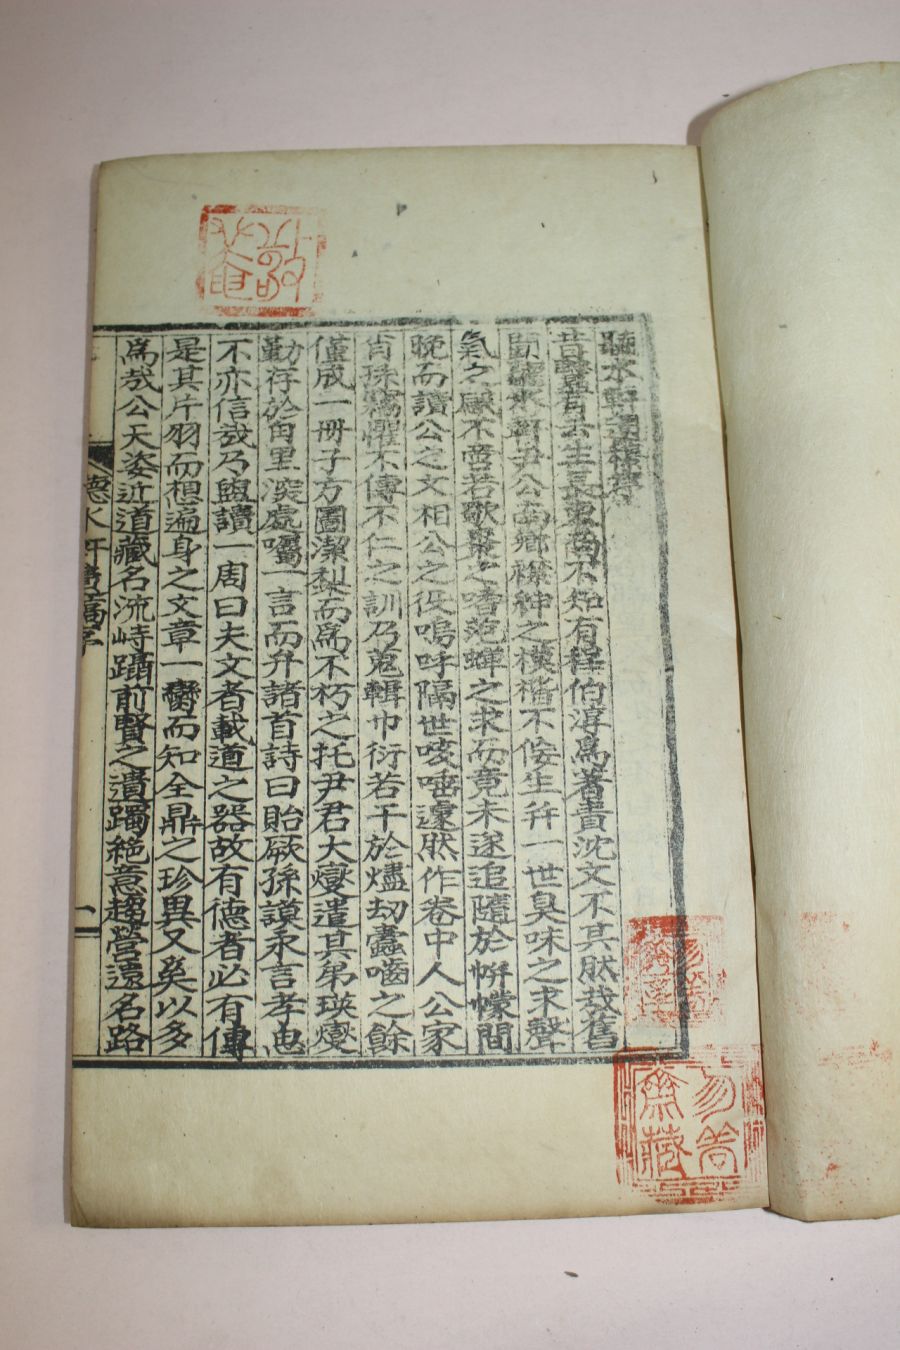 德水軒遺稿序
昔賢有云生長夷裔不知有程伯淳爲著書沈文不其然哉舊
聞德水軒尹公南鄉襟紳之模楷不佞生幷一世臭味之求聲
氣之感不啻若歜聚之嗜范蟬之求而竟未遂追隨於帡幪間
晚而讀公之文相公之役嗚呼隔世唆唾遽然作卷中人公家
肖孫竊懼不傳不仁之訓乃蒐輯巾衍若干於燼劫蠹嚙之餘
僅成一冊子方圖潔梨而爲不朽之托尹君大燮遣其弟瑛燮
勤存於甪里深處囑一言而弁諸首詩曰貽厥孫謨永言孝思
不亦信哉乃盥讀一周曰夫文者載道之器故有德者必有傳
是其片羽而想遍身之文章一臠而知全鼎之珍異又奚以多
爲哉公天姿近道藏名流峙躡前賢之遺躅絶意趨營遠名路
德水軒遺稿序
一
敬
菴